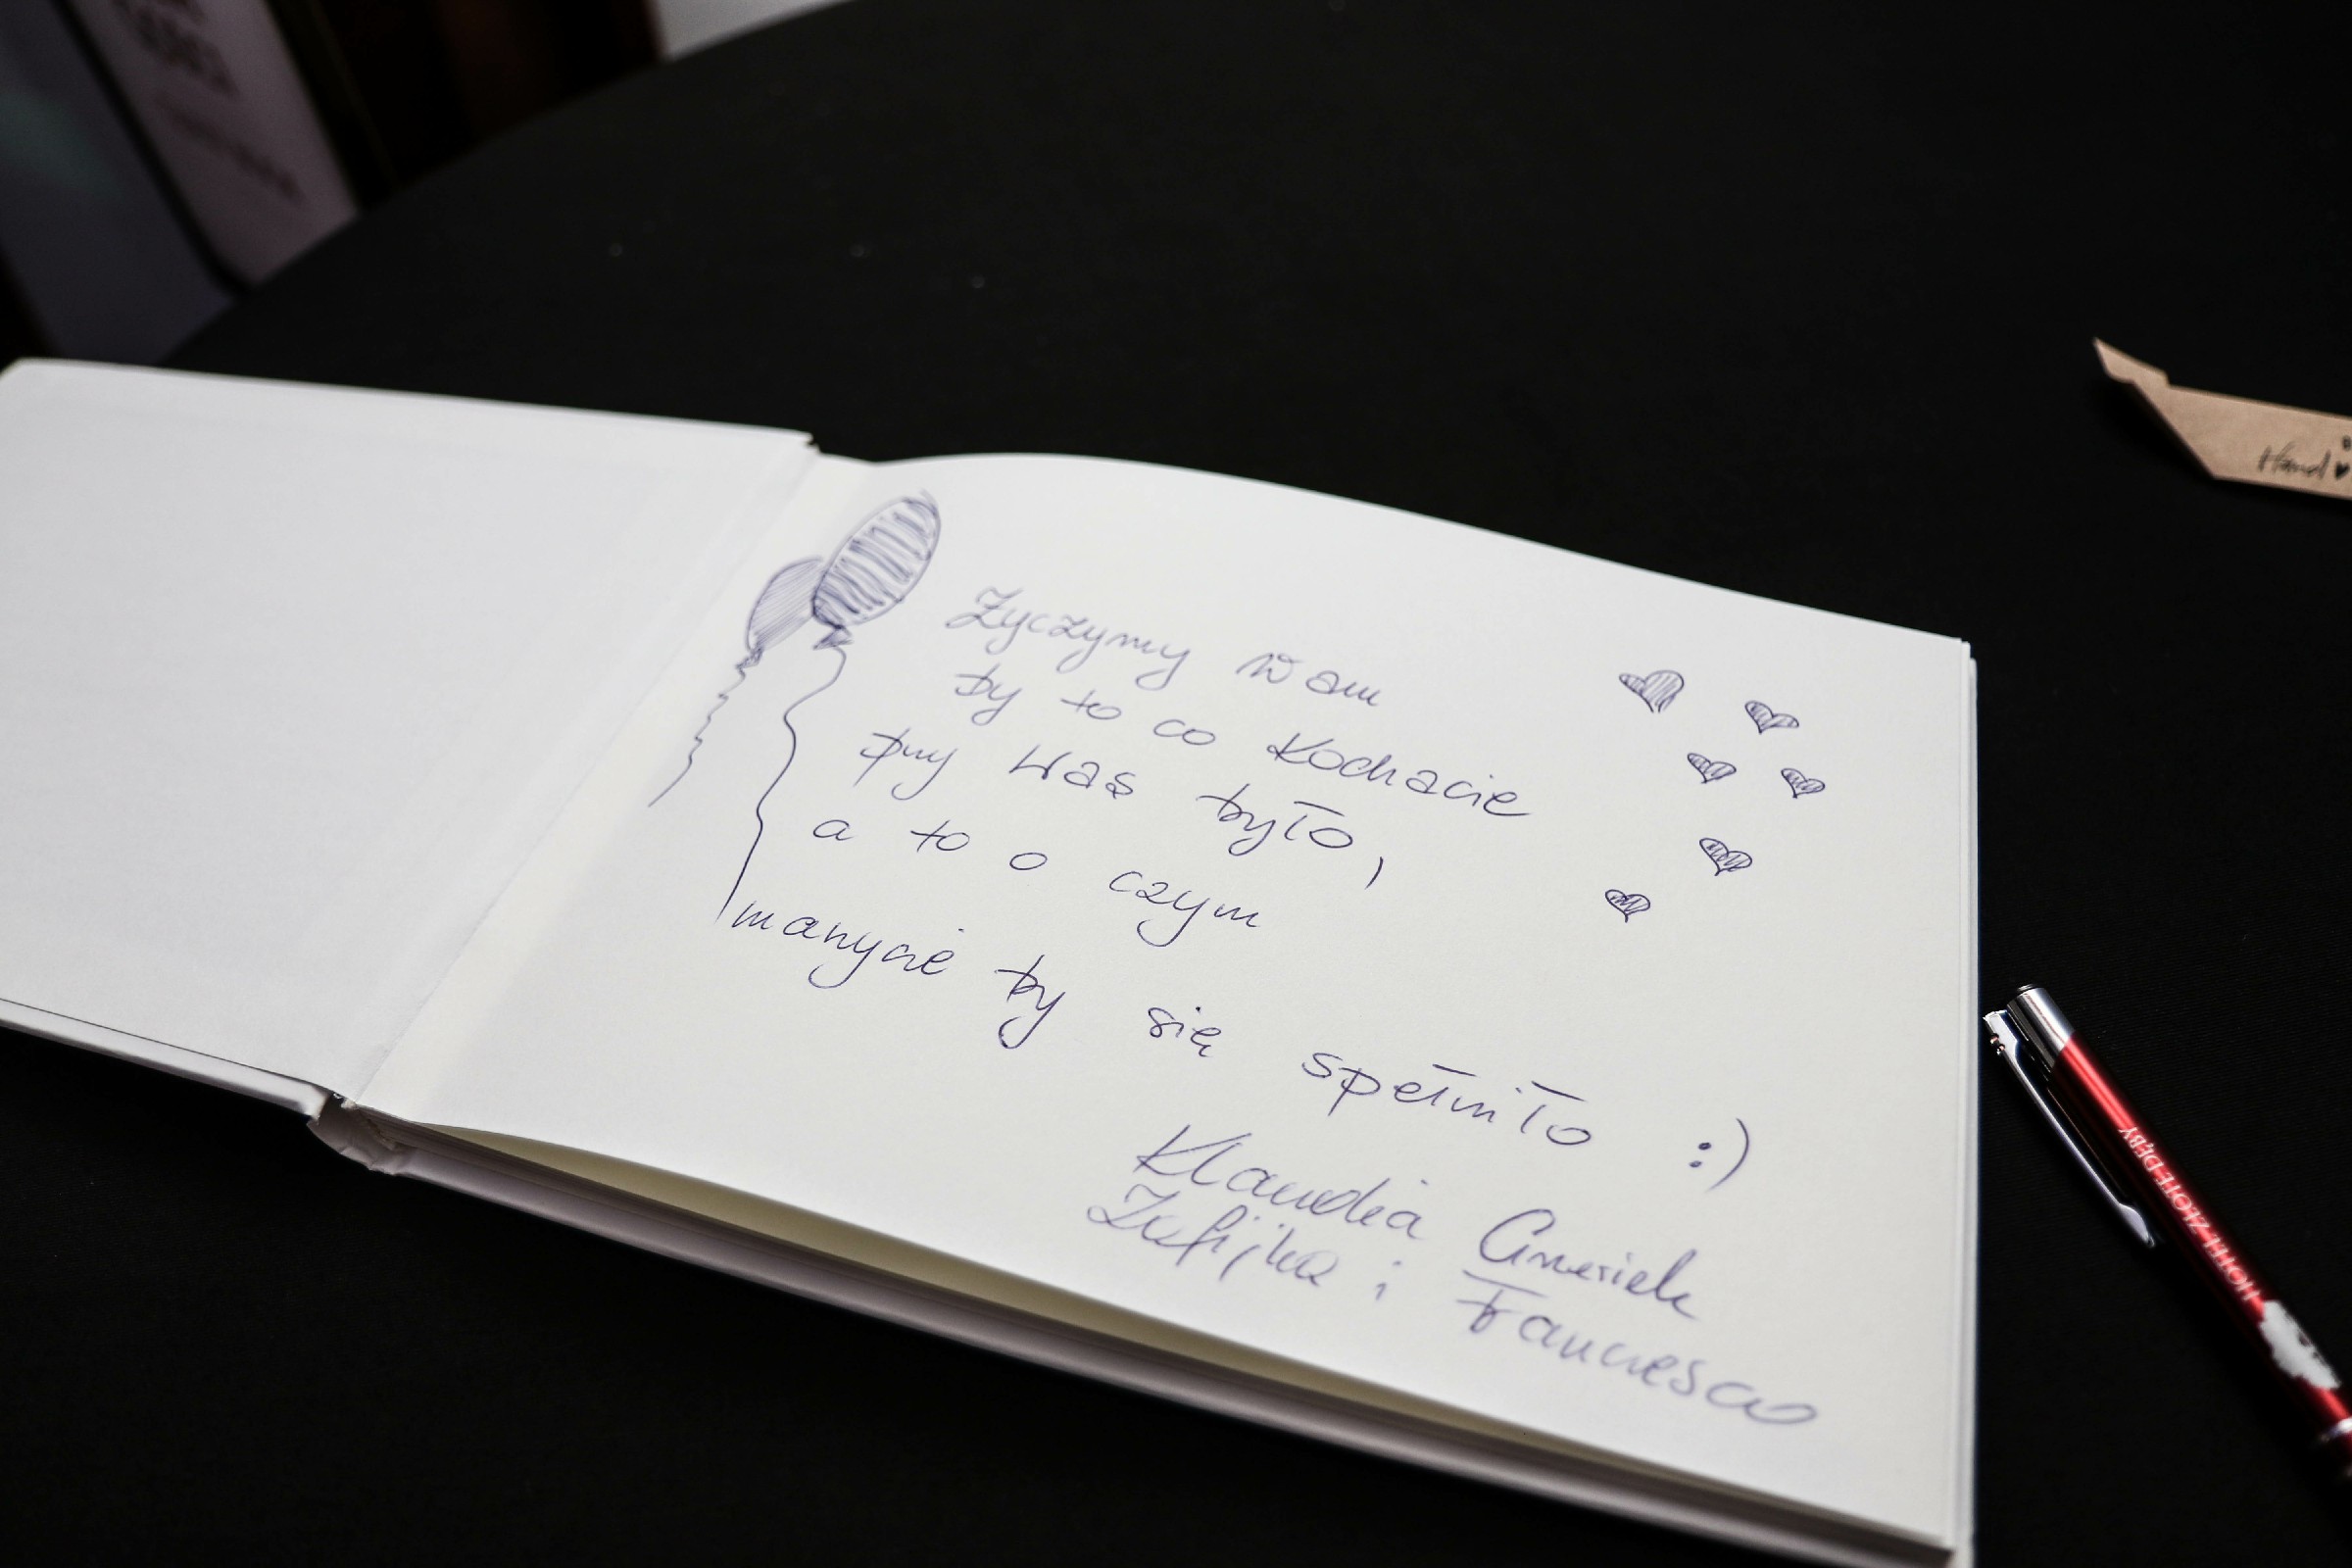 Życzymy Wam
by to co Kochacie
przy Was było,
a to o czym
marzycie by się spełniło :)
Klaudia
i Francesco
Hand
HOTEL ZŁOTE DĘBY